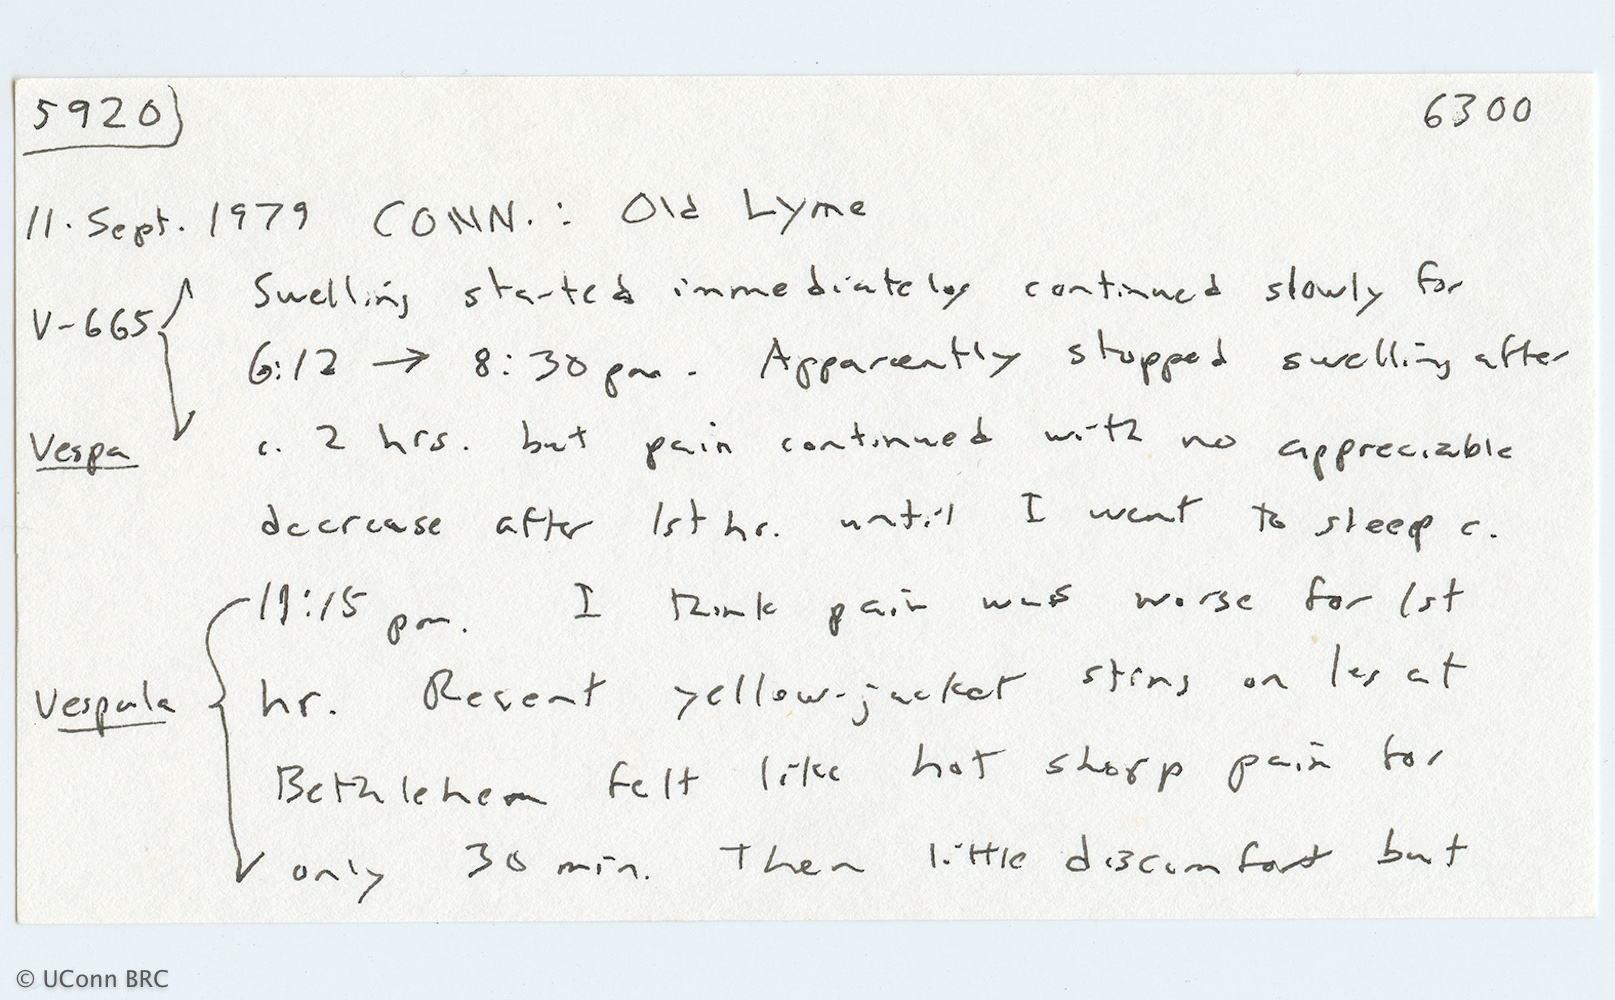 5920) 6300
11. Sept. 1979 CONN.: Old Lyme
Swelling started immediately continued slowly for
V-665
6:12 → 8:30 pm. Apparently stopped swelling after
Vespa c. 2 hrs. but pain continued with no appreciable
decrease after 1st hr. until I went to sleep c.
11:15 pm. I think pain was worse for 1st
Vespula hr. Recent yellow-jacket sting on leg at
Bethlehem felt like hot sharp pain for
only 30 min. Then little discomfort but
© UConn BRC